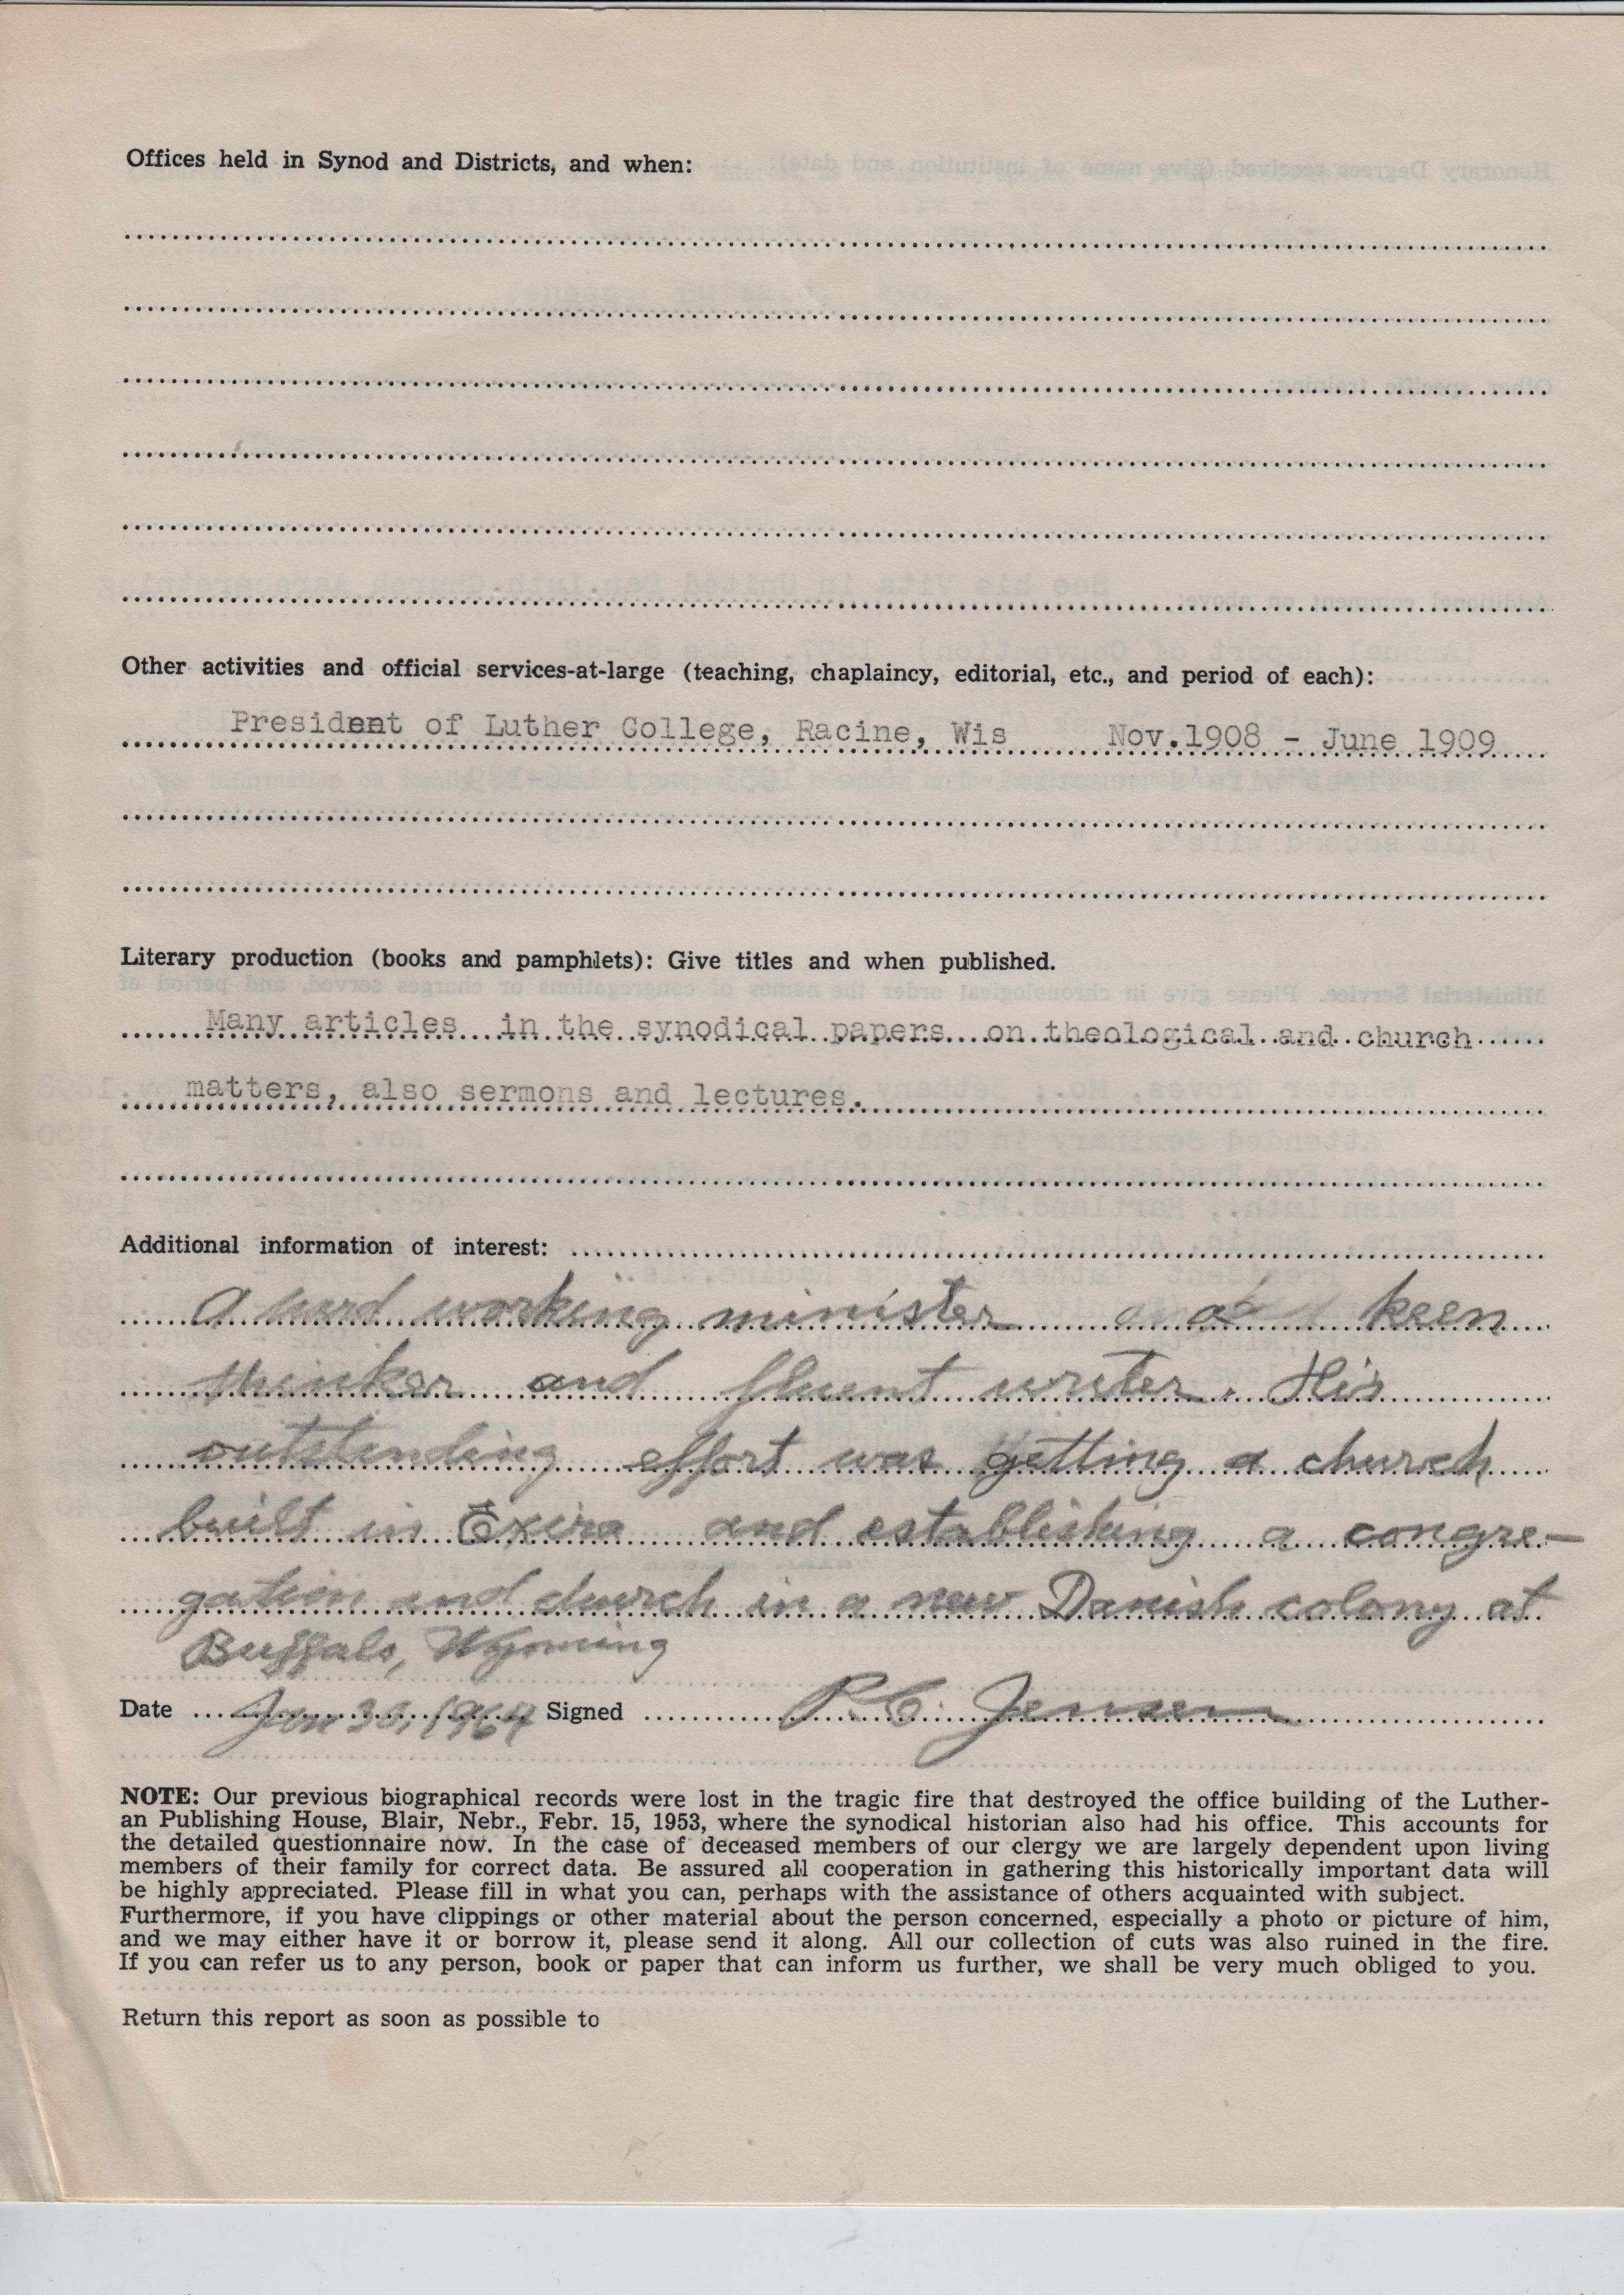 Offices held in Synod and Districts, and when:
Other activities and official services-at-large (teaching, chaplaincy, editorial, etc., and period of each):
President of Luther College, Racine, Wis Nov.1908 - June 1909
Literary production (books and pamphlets): Give titles and when published.
Many articles in the synodical papers on theological and church
matters, also sermons and lectures.
Additional information of interest:
A hard working minister a keen
thinker and fluent writer. His
outstanding effort was getting a church
built in Exira and establishing a congre-
gation and church in a new Danish colony at
Buffalo, Wyoming
Date Jan 30, 1964 Signed P.C. Jensen
NOTE: Our previous biographical records were lost in the tragic fire that destroyed the office building of the Luther-
an Publishing House, Blair, Nebr., Febr. 15, 1953, where the synodical historian also had his office. This accounts for
the detailed questionnaire now. In the case of deceased members of our clergy we are largely dependent upon living
members of their family for correct data. Be assured all cooperation in gathering this historically important data will
be highly appreciated. Please fill in what you can, perhaps with the assistance of others acquainted with subject.
Furthermore, if you have clippings or other material about the person concerned, especially a photo or picture of him,
and we may either have it or borrow it, please send it along. All our collection of cuts was also ruined in the fire.
If you can refer us to any person, book or paper that can inform us further, we shall be very much obliged to you.
Return this report as soon as possible to